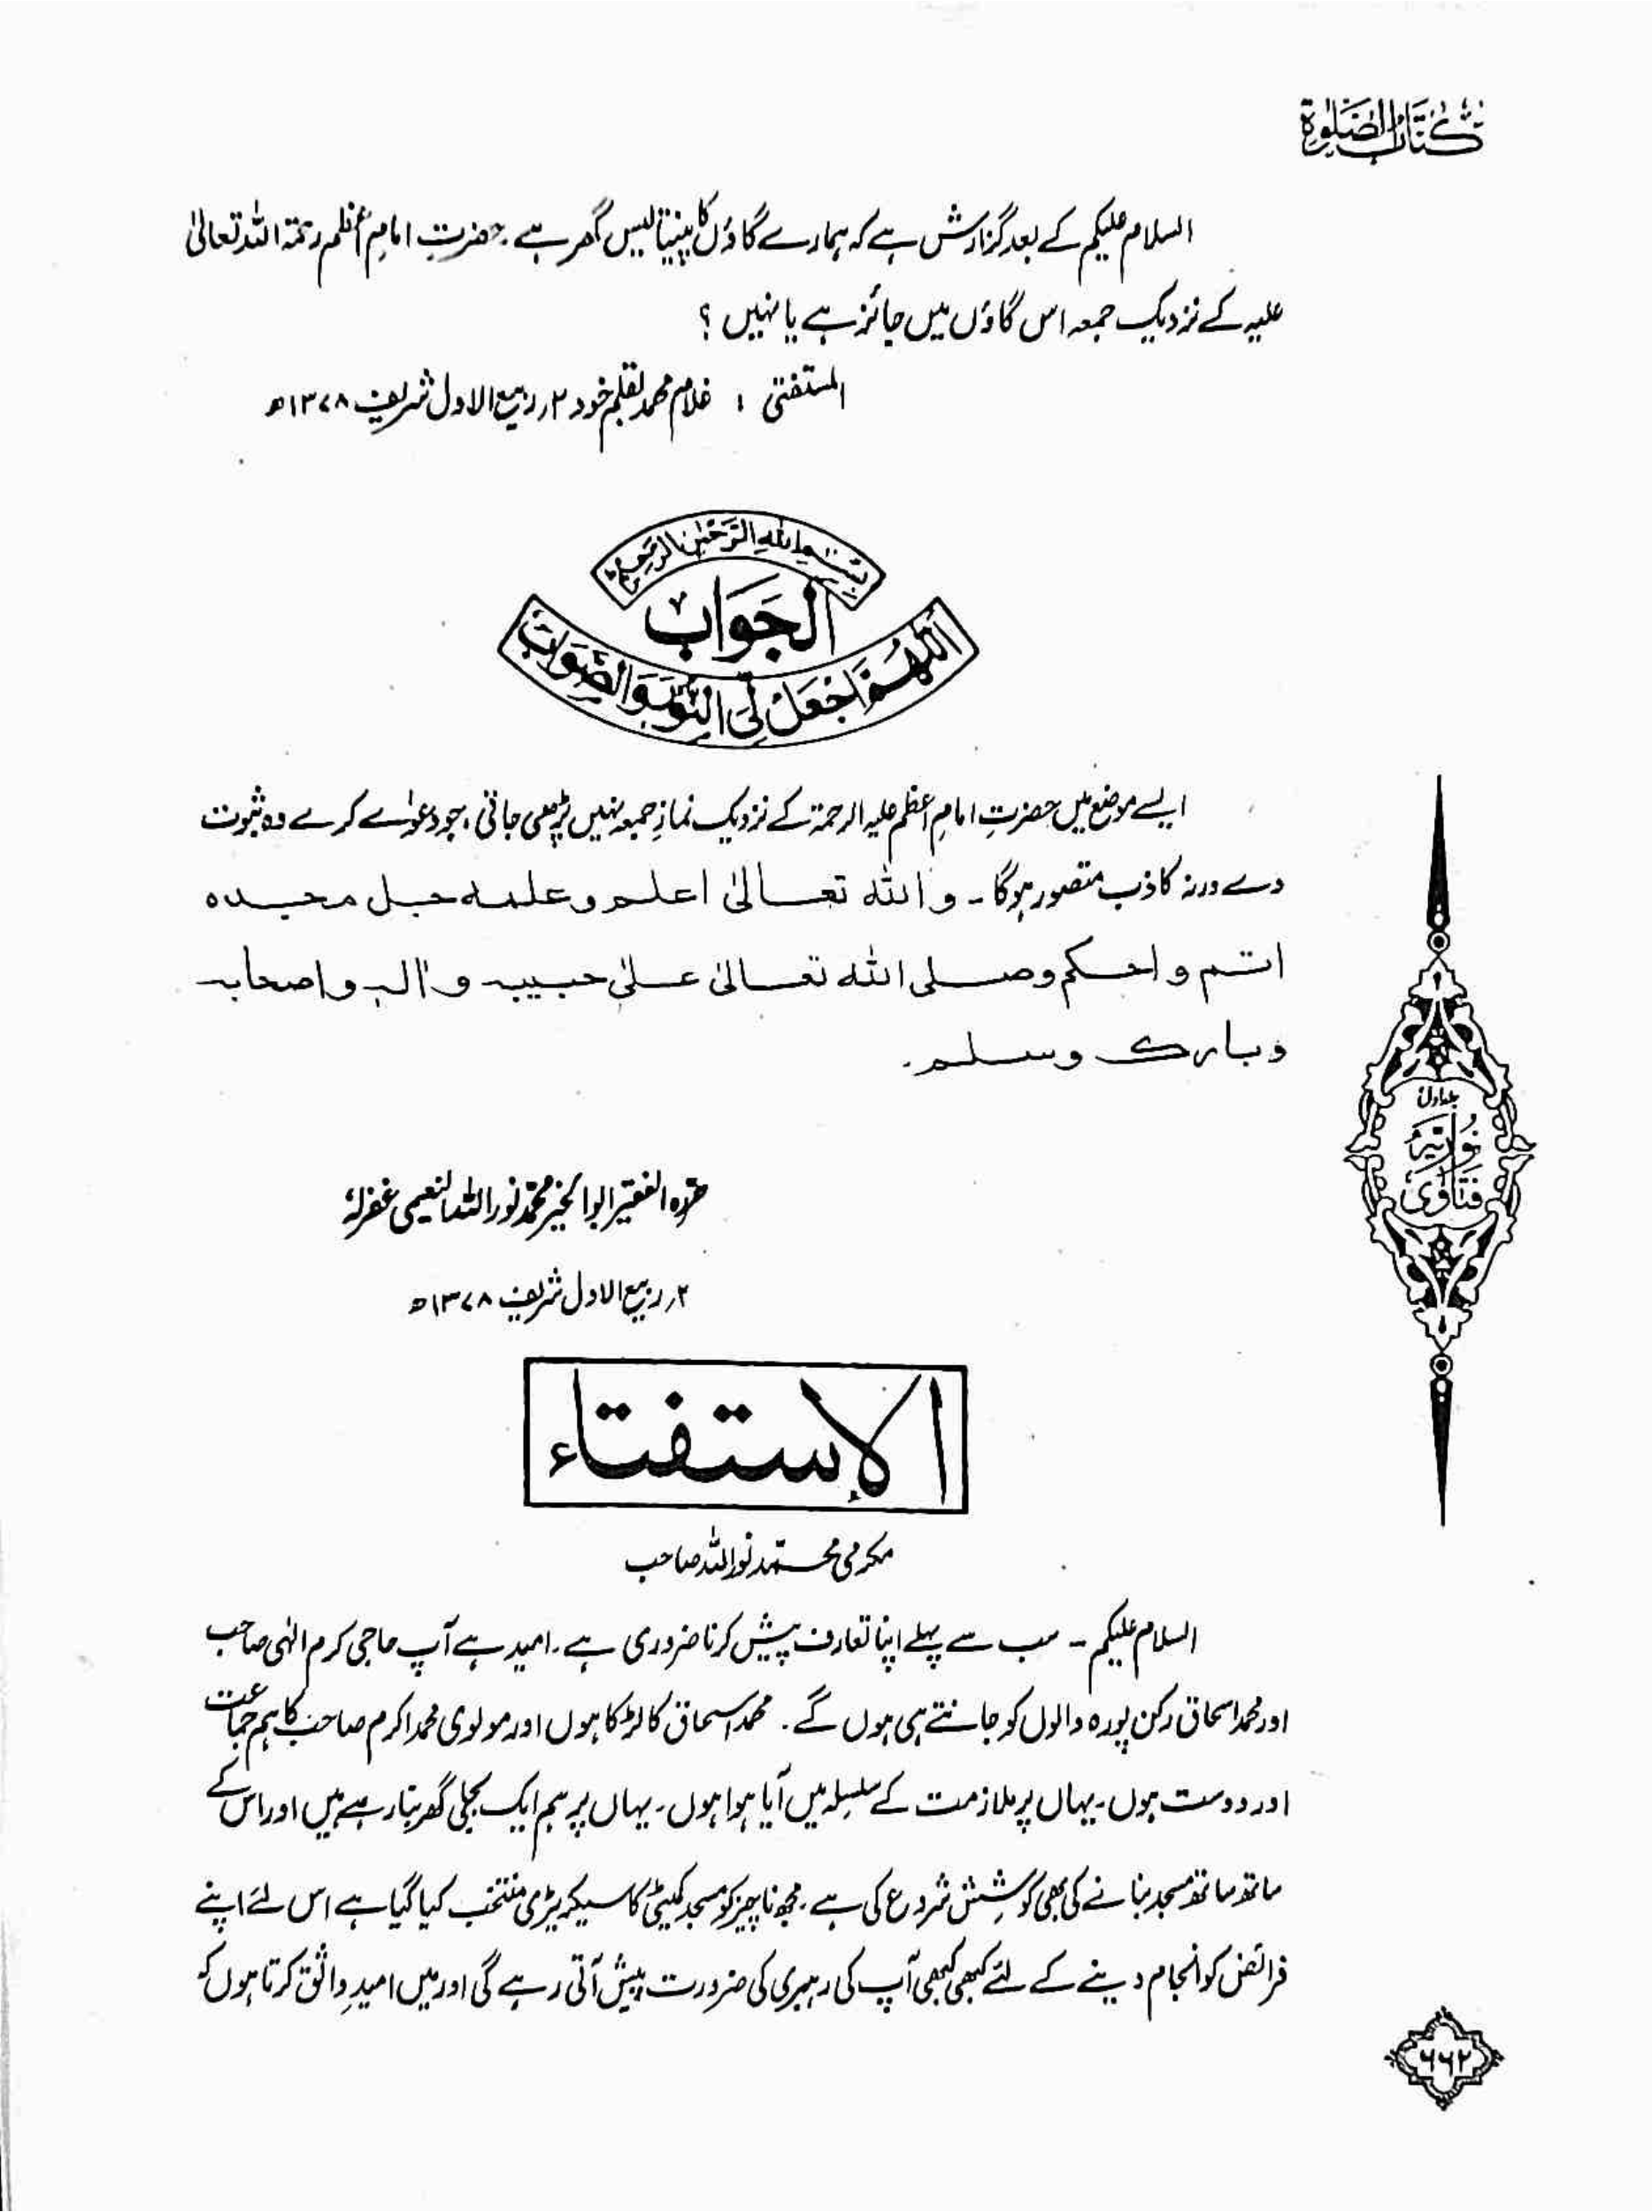 كتاب الصلوة
السلام علیکم کے بعد گزارش ہے کہ ہمارے گاؤں کا پینتالیس گھر ہے۔ حضرتِ امامِ اعظم رحمۃ اللہ تعالیٰ
علیہ کے نزدیک جمعہ اس گاؤں میں جائز ہے یا نہیں ؟
المستفتی : غلام محمد بقلم خود ۲ ربیع الاول شریف ۱۳۷۸ھ
بسم اللہ الرحمن الرحیم
الجواب
اللهم اجعل لی النور والصواب
ایسے موضع میں حضرتِ امامِ اعظم علیہ الرحمۃ کے نزدیک نمازِ جمعہ نہیں پڑھی جاتی، جو دعوٰے کرے وہ ثبوت
دے ورنہ کاذب متصور ہوگا۔ و اللہ تعالیٰ اعلم و علمہ جل مجیدہ
اتم و احکم و صلی اللہ تعالیٰ علیٰ حبیبہ و اٰلہٖ و اصحابہ
و بارک وسلم۔
حرّہ الفقیر ابو الخیر محمد نور اللہ النعیمی غفرلہٗ
۲ ربیع الاول شریف ۱۳۷۸ھ
جلد اول
فتاوىٰ نوریہ
الإستفتاء
مکرمی محمد نور اللہ صاحب
السلام علیکم – سب سے پہلے اپنا تعارف پیش کرنا ضروری ہے۔ امید ہے آپ حاجی کرم الٰہی صاحب
اور محمد اسحاق رکن پورہ والوں کو جانتے ہی ہوں گے۔ محمد اسحاق کا لڑکا ہوں اور مولوی محمد اکرم صاحب کا ہم جماعت
اور دوست ہوں۔ یہاں پر ملازمت کے سلسلہ میں آیا ہوا ہوں۔ یہاں پر ہم ایک بجلی گھر بنا رہے ہیں اور اس کے
ساتھ ساتھ مسجد بنانے کی بھی کوشش شروع کی ہے۔ مجھ ناچیز کو مسجد کمیٹی کا سیکریٹری منتخب کیا گیا ہے اس لئے اپنے
فرائض کو انجام دینے کے لئے کبھی کبھی آپ کی رہبری کی ضرورت پیش آتی رہے گی اور میں امیدِ واثق کرتا ہوں کہ
۶۶۲